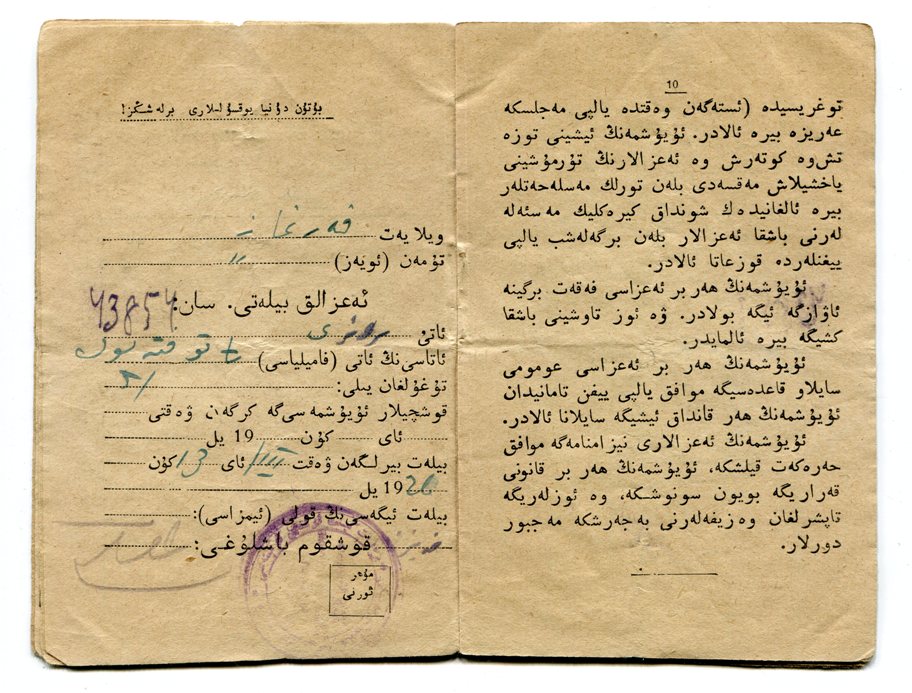 بۇتۇن دۇنيا يوقسۇللارى برلەشڭز!
ويلايەت
تۇمەن (ئويەز) "
ئەعزالق بيلەتى. سان: 43854
ئاتۇ
ئاتاسى نڭ ئاتى (فاميلياسى)
تۇغۇلغان يىلى:
قوشچيلار ئۇيۇشمەسى گە كرگەن ۋەقتى
ئاى كۇن 19 يل
بيلەت بيرلگەن ۋەقت III ئاى 13 كۇن
1926 يل
بيلەت ئيگەسى نڭ قولى (ئيمزاسى):
قۇشقوم باشلۇغى:
مۇهر
ئورنى
10
توغريسيدە (ئستەگەن وەقتدە يالپى مەجلسكە
عەريزە بيرە ئالادر. ئۇيۇشمەنڭ ئيشينى توزە
تش وە كوتەرش وە ئەعزالارنڭ تۇرمۇشينى
ياخشيلاش مەقسەدى بلەن تورلك مەسلەحەتلەر
بيرە ئالغانيدەك شونداق كيرەكليك مەسئەلە
لەرنى باشقا ئەعزالار بلەن برگەلەشب يالپى
ييغنلەردە قوزعاتا ئالادر.
ئۇيۇشمەنڭ هەر بر ئەعزاسى فەقەت برگينە
ئاۋازگە ئيگە بولادر. ۋە ئوز تاوشينى باشقا
كشيگە بيرە ئالمايدر.
ئۇيۇشمەنڭ هەر بر ئەعزاسى عومومى
سايلاو قاعدەسيگە موافق يالپى ييغن تامانيدان
ئۇيۇشمەنڭ هەر قانداق ئيشيگە سايلانا ئالادر.
ئۇيۇشمەنڭ ئەعزالارى نيزامنامەگە موافق
حەرەكەت قيلشكە، ئۇيۇشمەنڭ هەر بر قانونى
قەراريگە بويون سونوشكە، وە ئوزلەريگە
تاپشرلغان وەزيفەلەرنى بەجەرشكە مەجبور
دورلار.